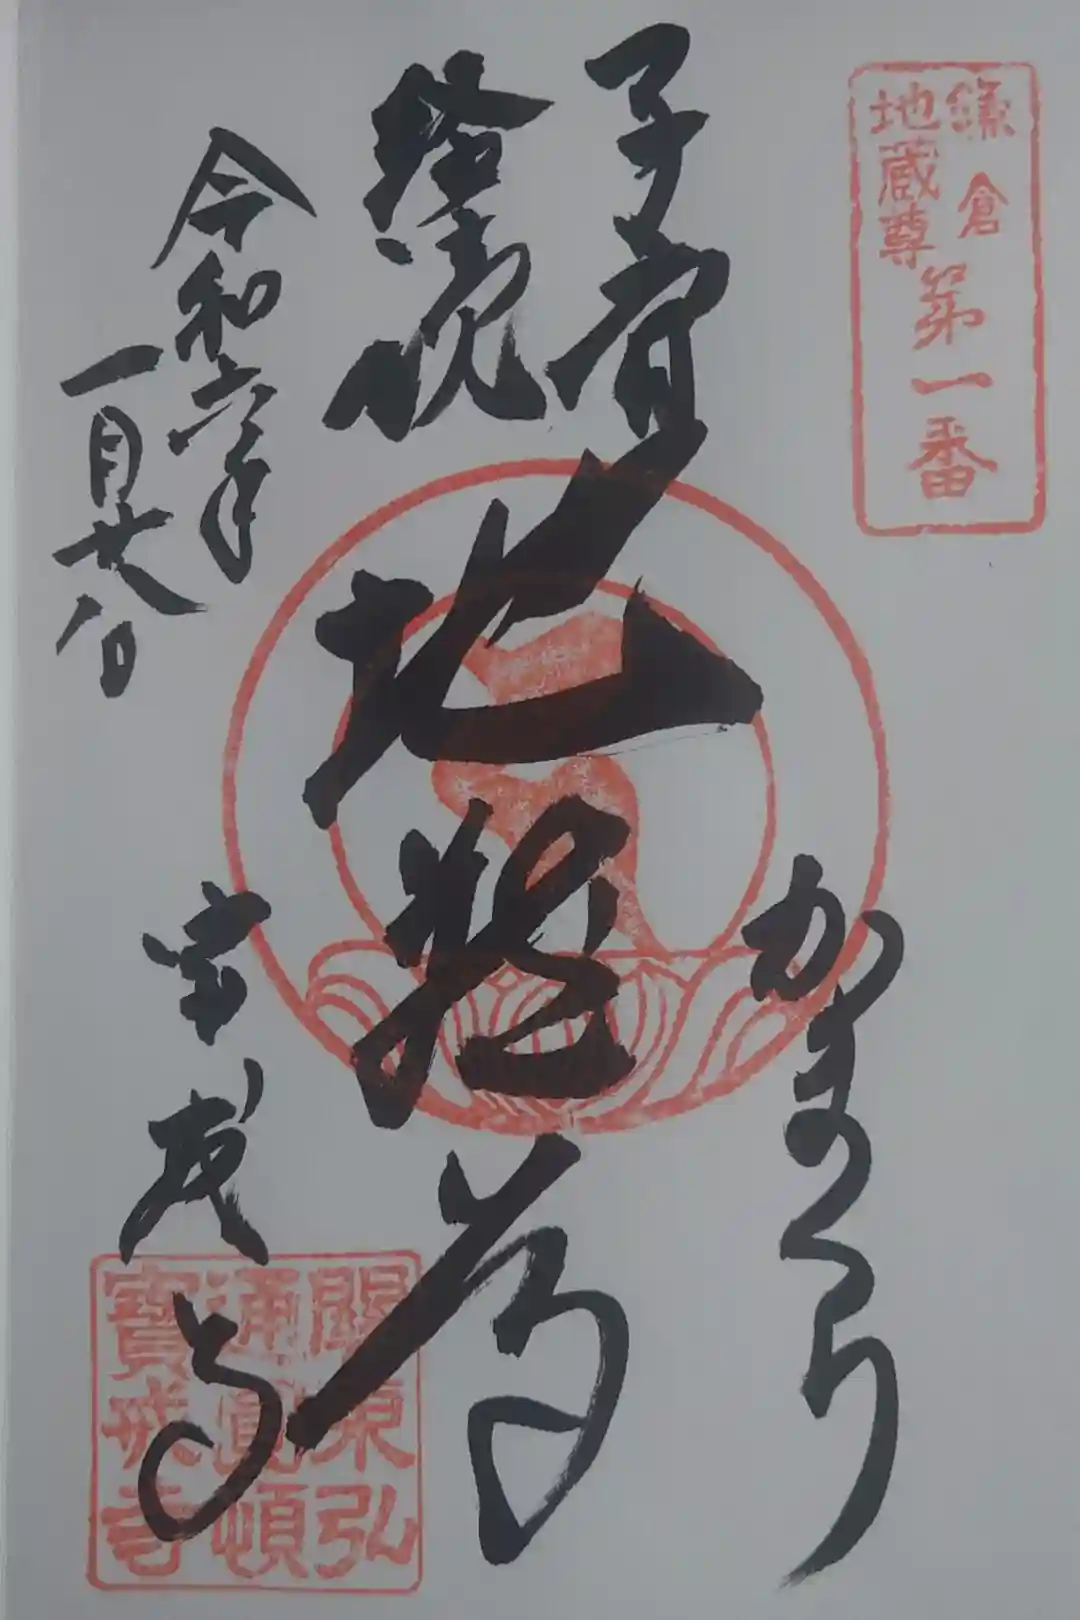 鎌倉
地蔵尊
第一番
子育
経読
地蔵尊
かまくら
令和六年
一月廿八日
宝戒寺
關東弘
通圓頓
寶戒寺